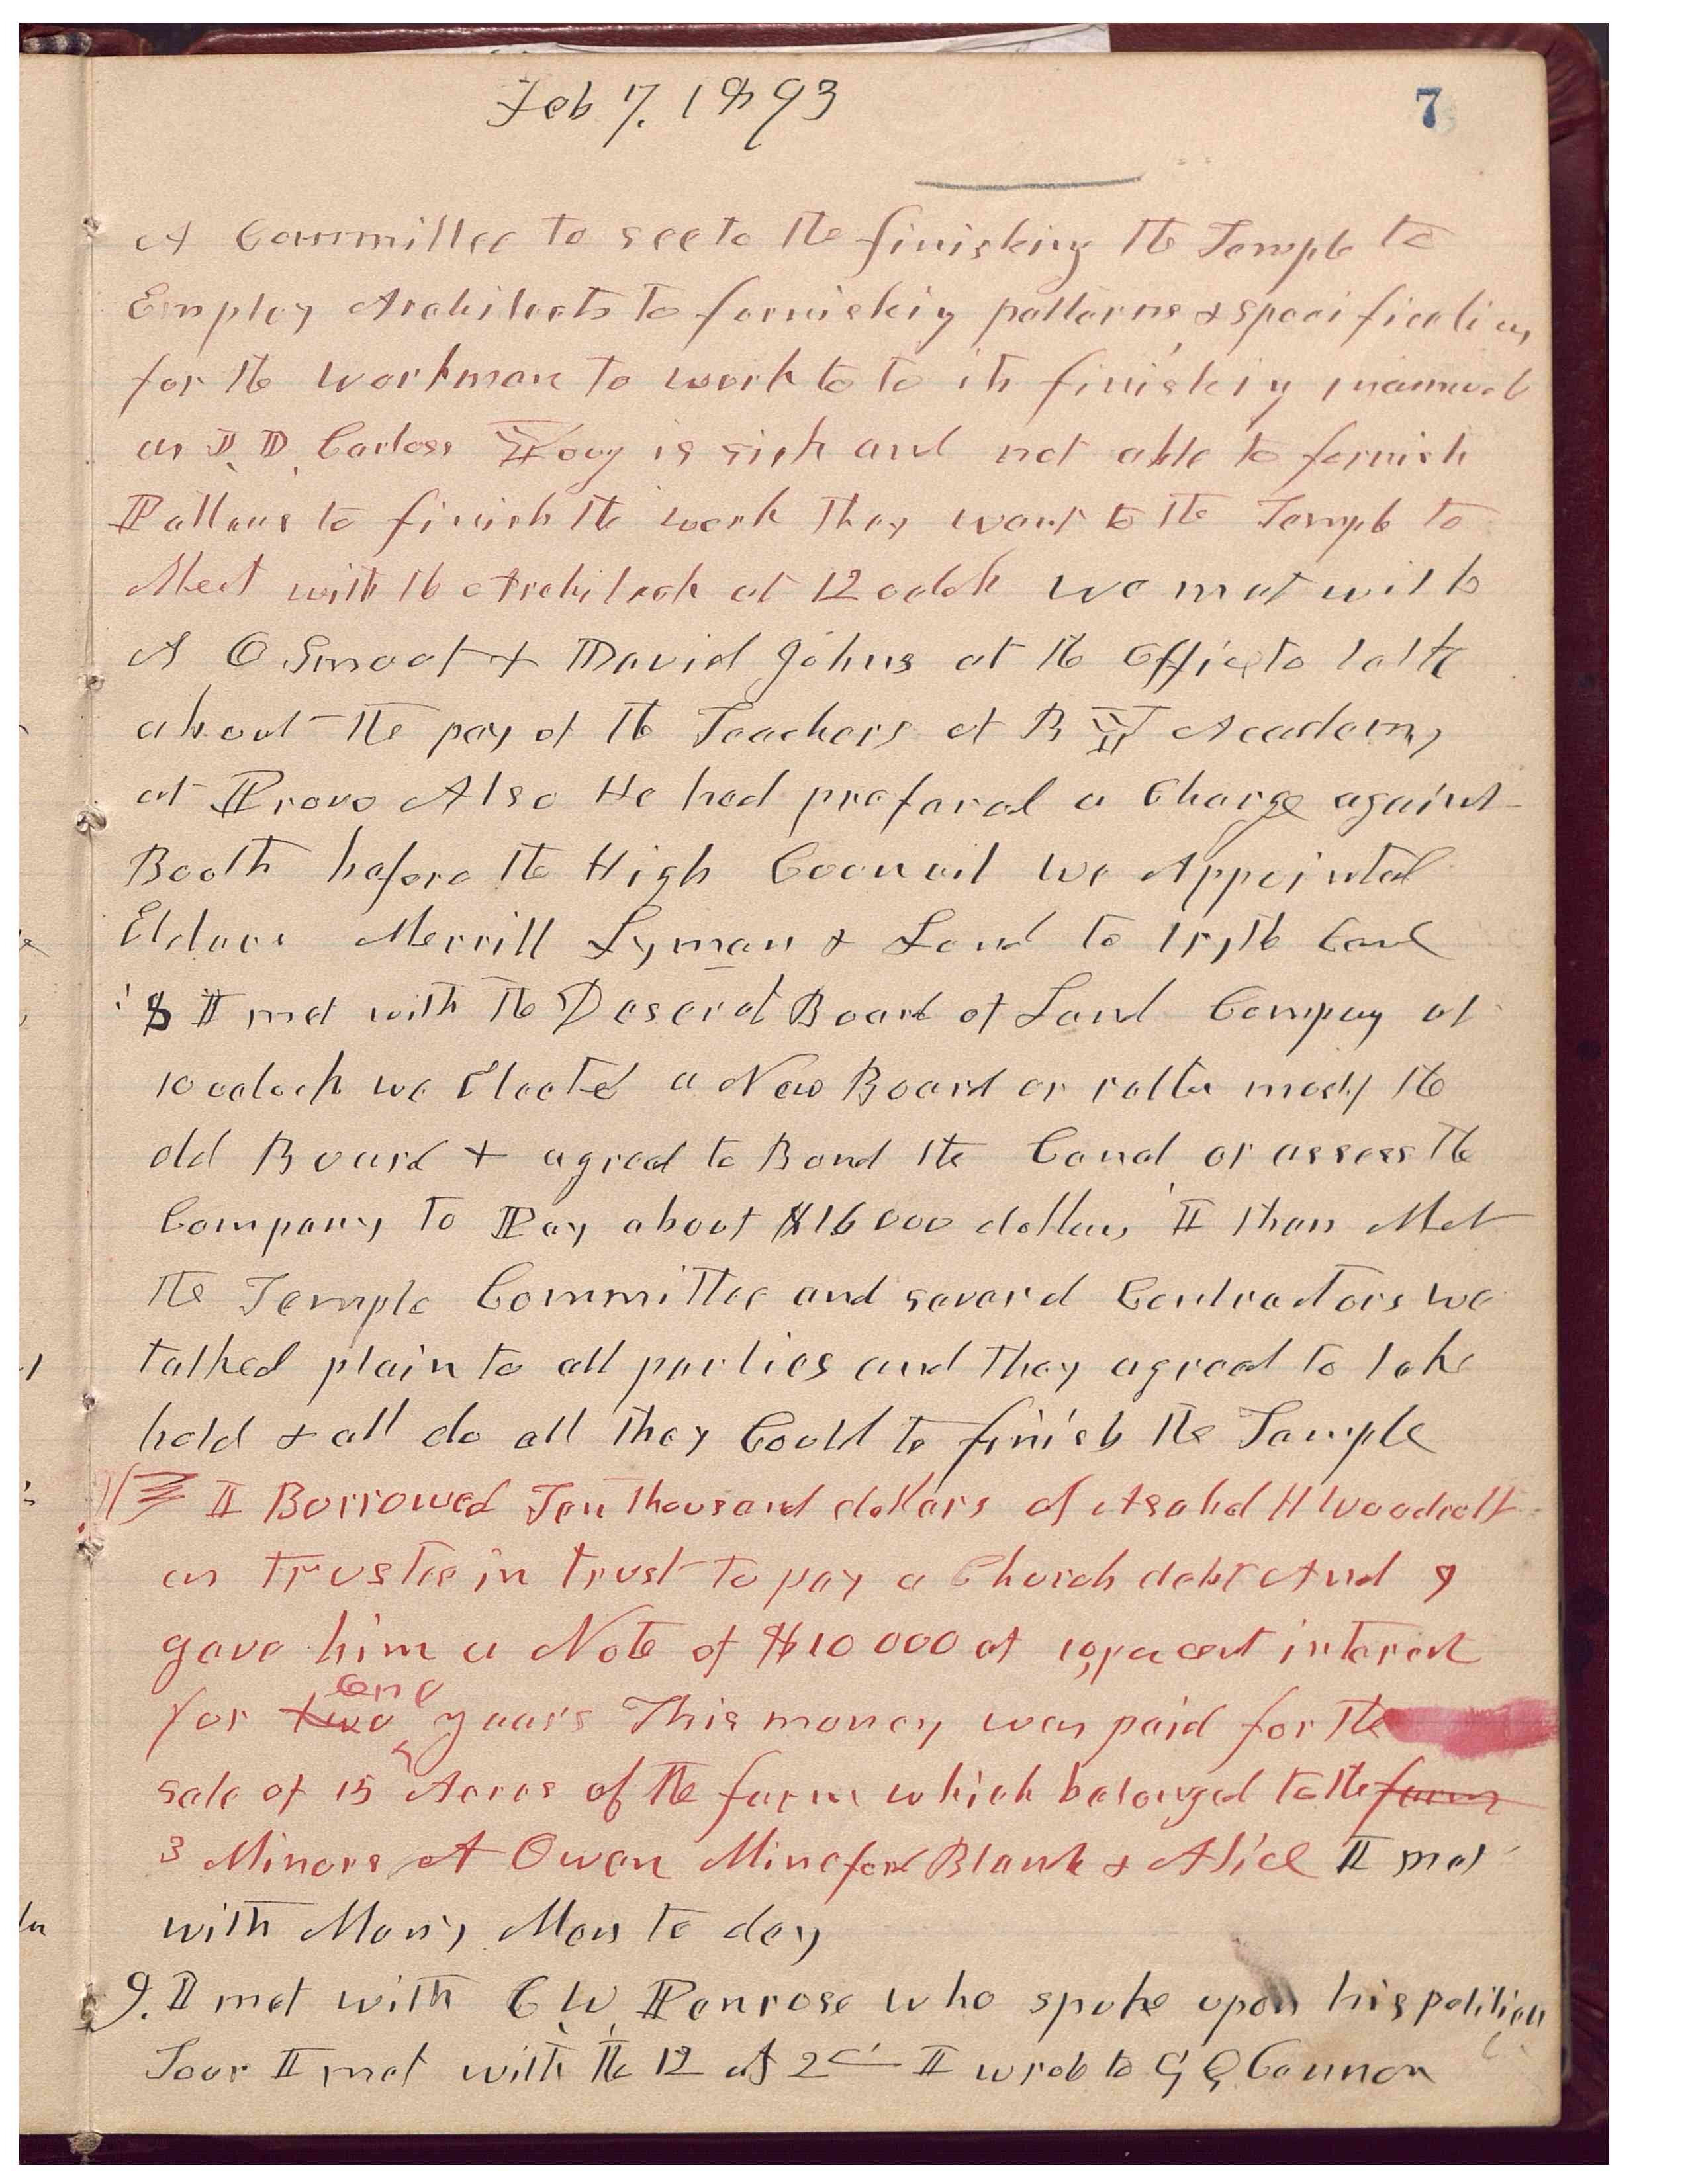 Feb 7. 1893
7
A Committee to see to the finishing the Temple to
Employ Architects to furnishing patterns & specification
for the workman to work to to its finishing inasmuch
as D. D. Carloss Young is sick and not able to fernish
Patterns to finish the work They went to the Temple to
Meet with the Architech at 12 oclok we met with
A O Smoot & David Johns at the Office to talk
about the pay of the Teachers at B Y Academy
at Provo Also He had prefered a Charge against
Booth before the High Council we Appointed
Elders Merrill Lyman & Lund to try the Case
8 I met with the Deseret Board of Land Company at
10 oclock we Elected a New Board or rather mostly the
old Board & agreed to Bond the Canal or assess the
Company to Pay about $16000 dollars I then Met
the Temple Committee and several Contractors we
talked plain to all parties and they agreed to take
hold & all do all they Could to finish the Temple
I Borrowed Ten thousand dollars of Asahel H Woodruff
as trustee in trust to pay a Church debt And I
gave him a Note of $10000 at 10 per cent interest
one
for two years This money was paid for the
sale of 15 Acres of the farm which belonged to the farm
3 Minors A Owen Blanch & Alice I met
with Many Men to day
9. I met with C. W. Penrose who spoke upon his political
Tour I met with the 12 at 2 I wrote to G Q Cannon